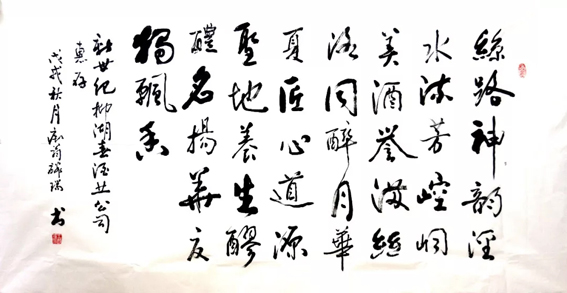 絲路神韵涇
水流芳崆峒
美酒譽滿絲
路同醉月華
夏匠心道源
聖地養生醪
醴名揚華夏
獨飄香
新世紀柳湖春酒业公司
惠存
戊戌秋月
书